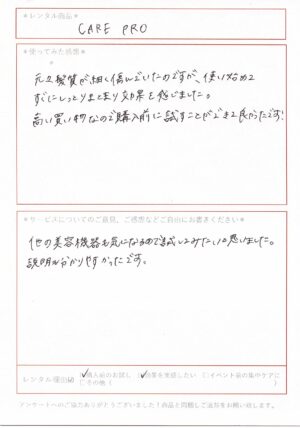 ＊レンタル商品＊
CARE PRO
＊使ってみた感想＊
元々髪質が細く傷んでいたのですが、使い始めて
すぐにしっとりまとまり効果を感じました。
高い買い物なので購入前に試すことができて良かったです!
＊サービスについてのご意見、ご感想などご自由にお書きください＊
他の美容機器も気になるので試してみたいと思いました。
説明も分かりやすかったです。
レンタル理由
✓購入前のお試し ✓効果を実感したい 〇イベント前の集中ケアに
〇その他（
アンケートへのご協力ありがとうございました!商品と同梱しご返却をお願い致します。